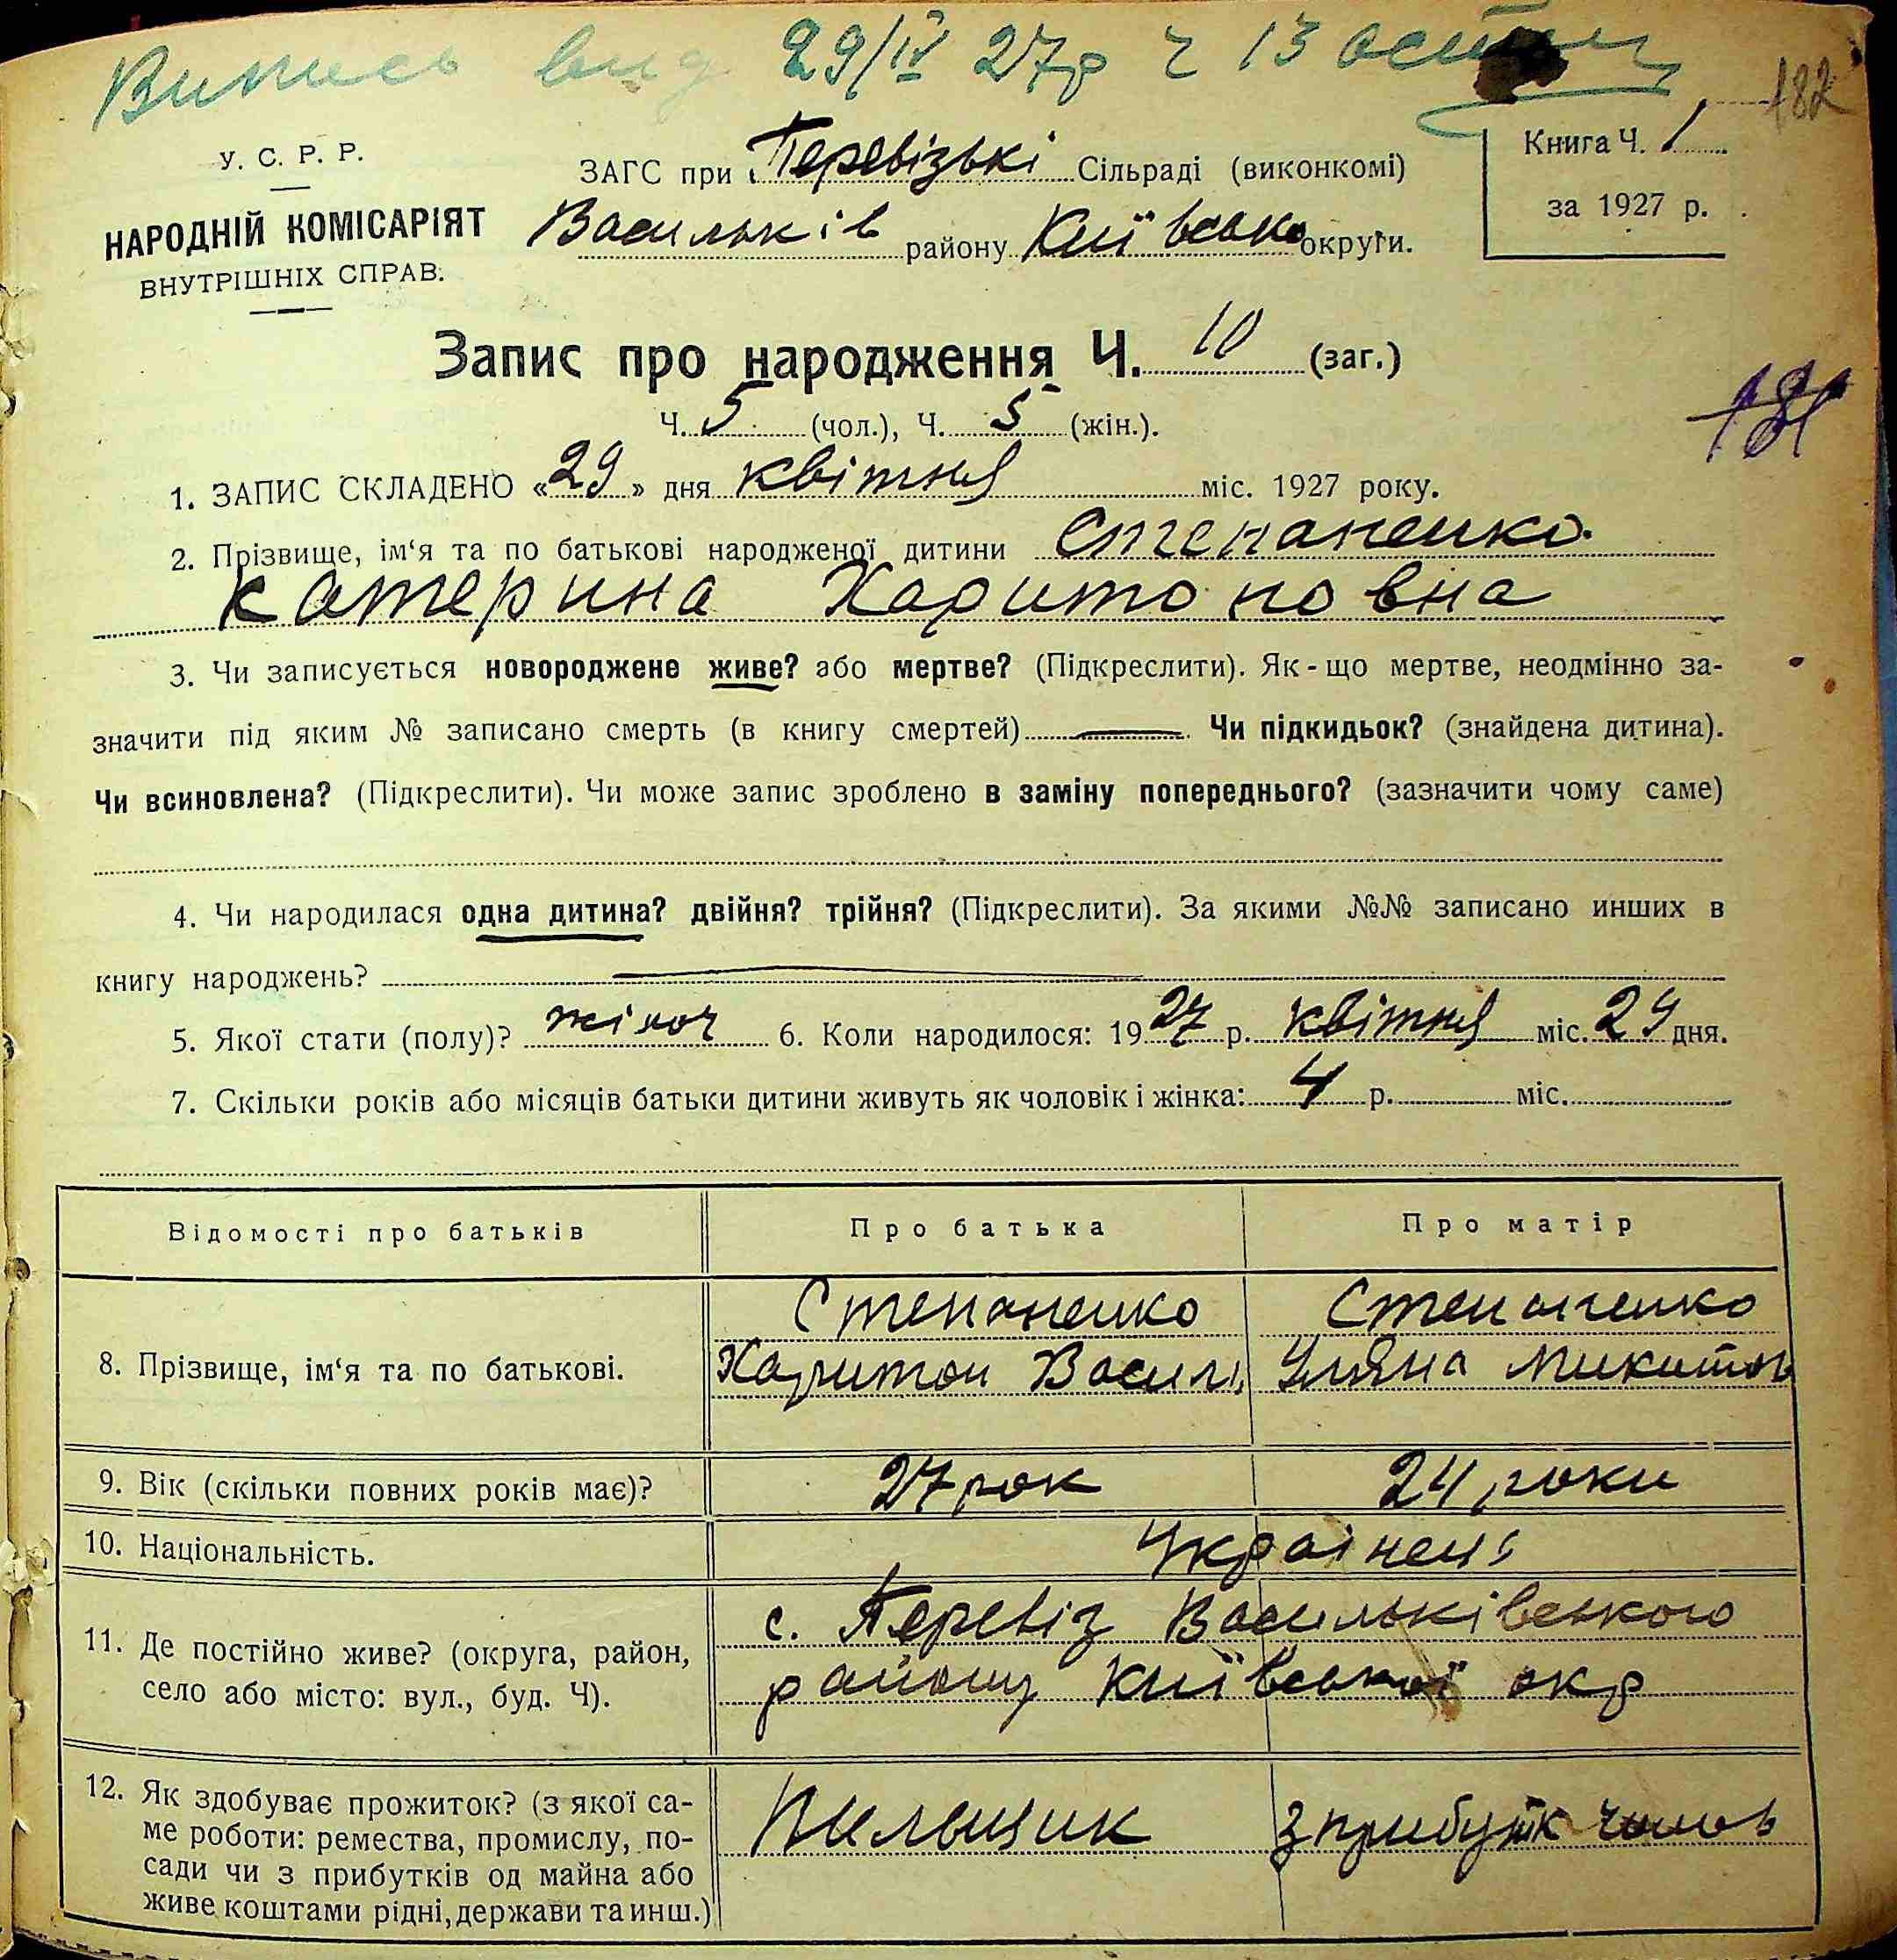 Випись вид 29/IV 27р Ч 13
182
У. С. Р. Р.
НАРОДНІЙ КОМІСАРІЯТ
ВНУТРІШНІХ СПРАВ.
ЗАГС при Перевізькі Сільраді (виконкомі)
Васильків району Київсько округи.
Книга Ч. 1
за 1927 р.
Запис про народження Ч. 10 (заг.)
Ч. 5 (чол.), Ч. 5 (жін.).
181
1. ЗАПИС СКЛАДЕНО «29» дня квітня міс. 1927 року.
2. Прізвище, ім‘я та по батькові народженої дитини Степаненко
Катерина Харитоновна
3. Чи записується новороджене живе? або мертве? (Підкреслити). Як-що мертве, неодмінно за-
значити під яким № записано смерть (в книгу смертей) Чи підкидьок? (знайдена дитина).
Чи всиновлена? (Підкреслити). Чи може запис зроблено в заміну попереднього? (зазначити чому саме)
4. Чи народилася одна дитина? двійня? трійня? (Підкреслити). За якими №№ записано инших в
книгу народжень?
5. Якої стати (полу)? жіноч 6. Коли народилося: 1927 р. квітня міс. 29 дня.
7. Скільки років або місяців батьки дитини живуть як чоловік і жінка: 4 р. міс.
Відомості про батьків Про батька Про матір
8. Прізвище, ім‘я та по батькові.
Степаненко
Харитон Васил
Степаненко
Уляна Микитов
9. Вік (скільки повних років має)? 27 рок 24 роки
10. Національність. Українець
11. Де постійно живе? (округа, район,
село або місто: вул., буд. Ч).
с. Перевіз Васильківського
району Київської окр
12. Як здобуває прожиток? (з якої са-
ме роботи: ремества, промислу, по-
сади чи з прибутків од майна або
живе коштами рідні, держави та инш.)
Пильщик
з прибутк чолов